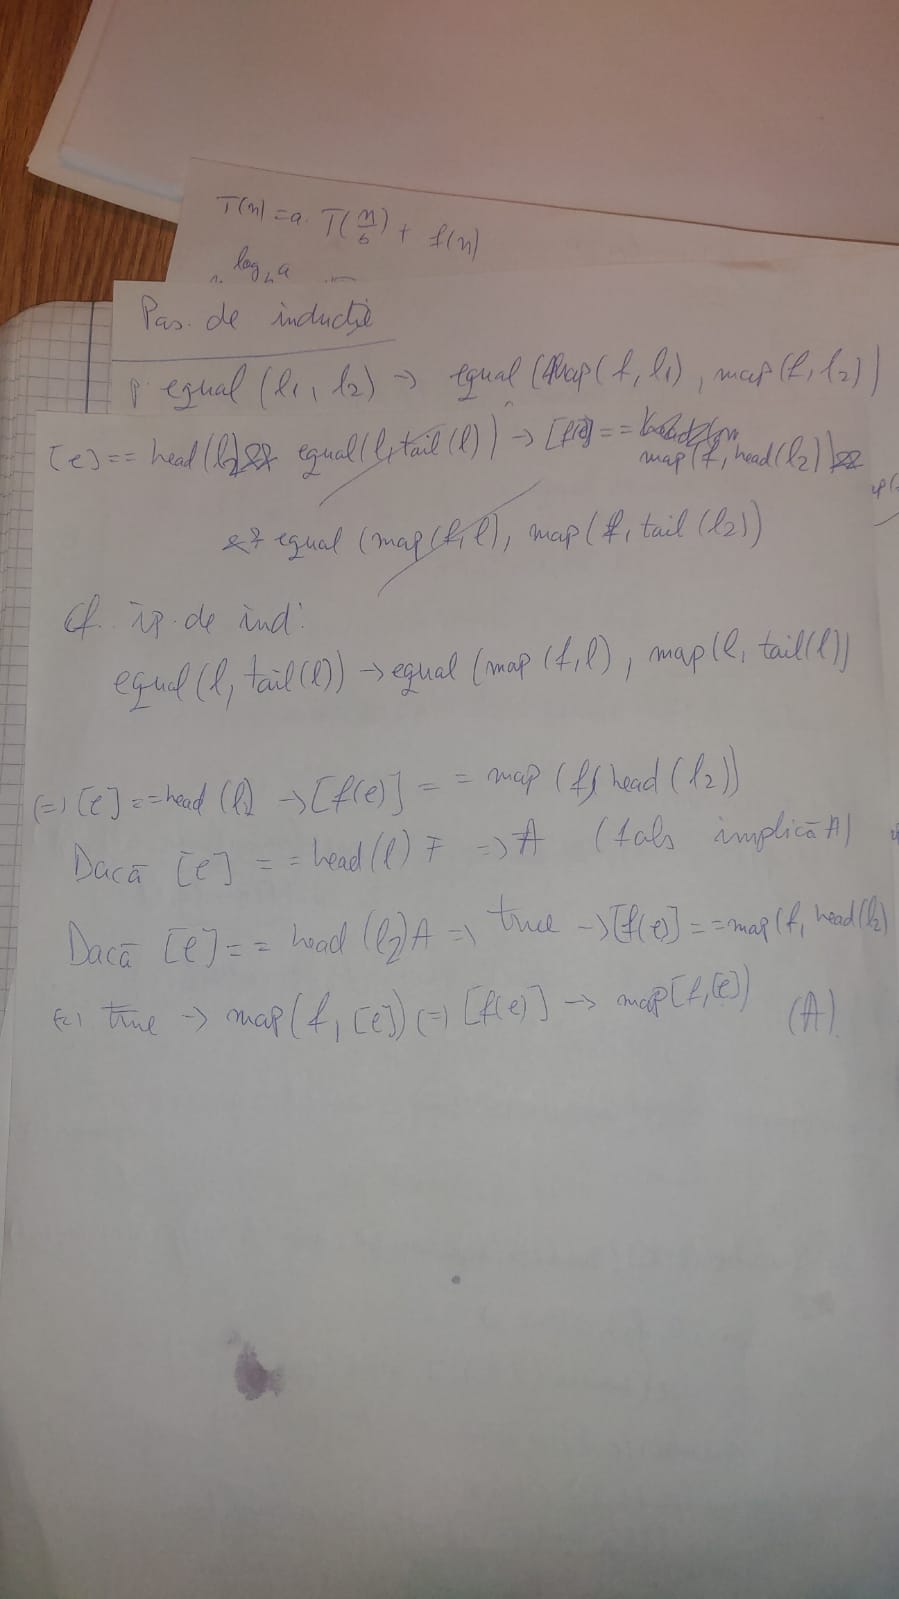 T(n) = a. T(n/b) + f(n)
log_b a
Pas. de inducție
equal (l1, l2) → equal (map (f, l1), map (f, l2))
[e] == head (l2) && equal (l, tail (l)) → [f(e)] == map (f, head (l2)) &&
&& equal (map (f, l), map (f, tail (l2))
Cf. ip. de ind:
equal (l, tail (l)) → equal (map (f, l), map (l, tail (l))
(=) [e] == head (l2) → [f(e)] == map (f, head (l2))
Dacă [e] == head (l) F => A (fals implică A)
Dacă [e] == head (l2) A => true → [f(e)] == map (f, head (l2)
(=) true → map (f, [e]) (=) [f(e)] → map [f, [e]) (A).